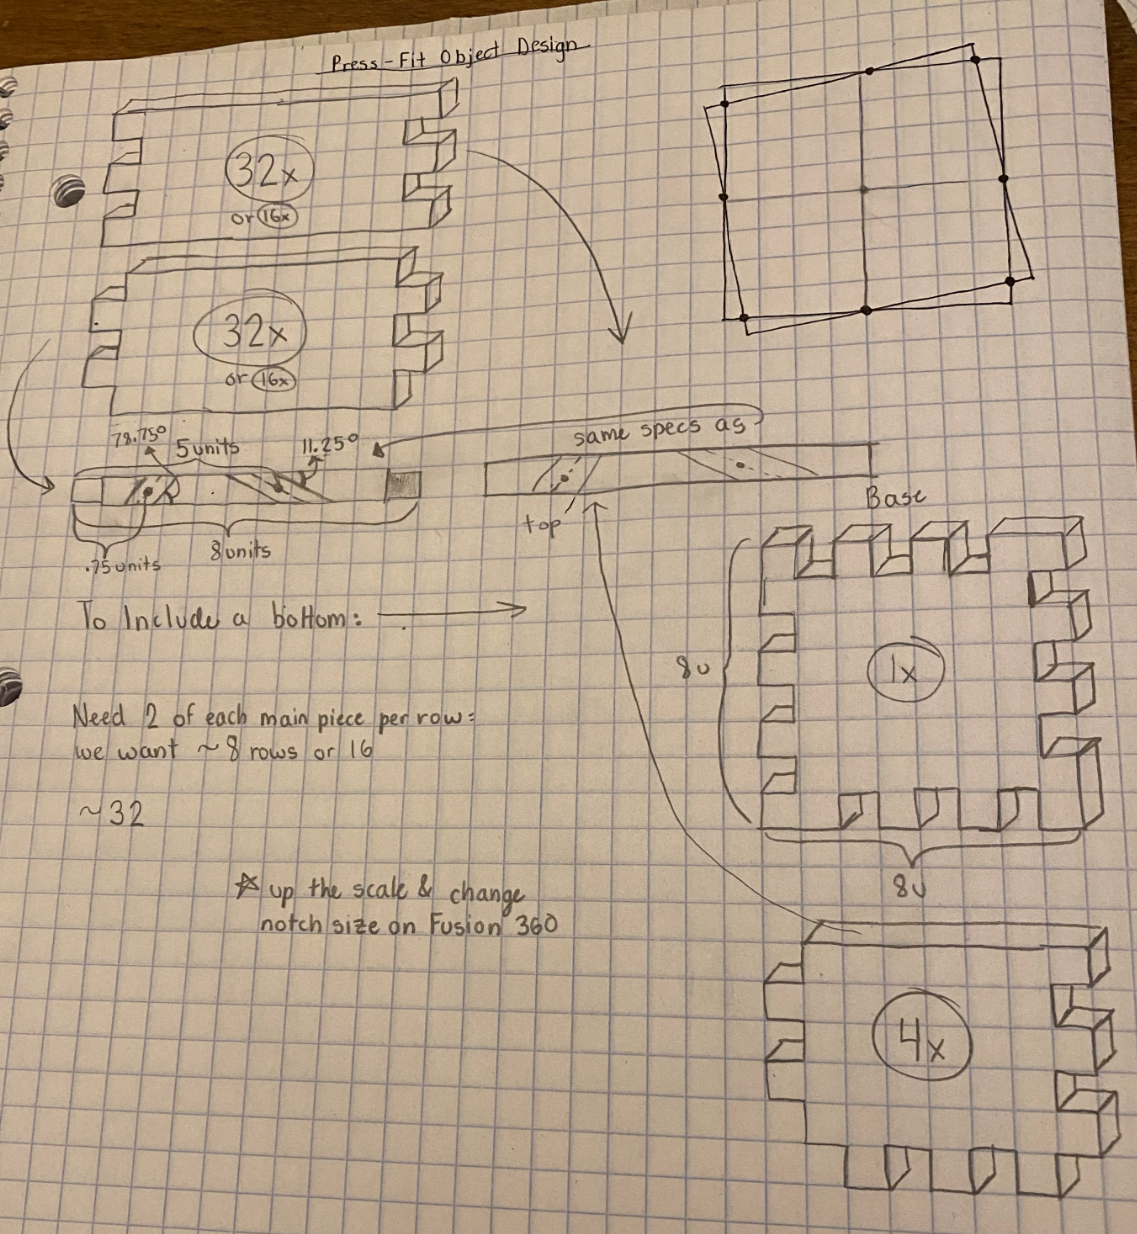 Press-Fit Object Design
32x
or 16x
32x
or 16x
78.75°
5units
11.25°
.75 units
8units
same specs as
top
Base
To Include a bottom:
8u
1x
8u
Need 2 of each main piece per row:
we want ~8 rows or 16
~32
☆ up the scale & change
notch size on Fusion 360
4x